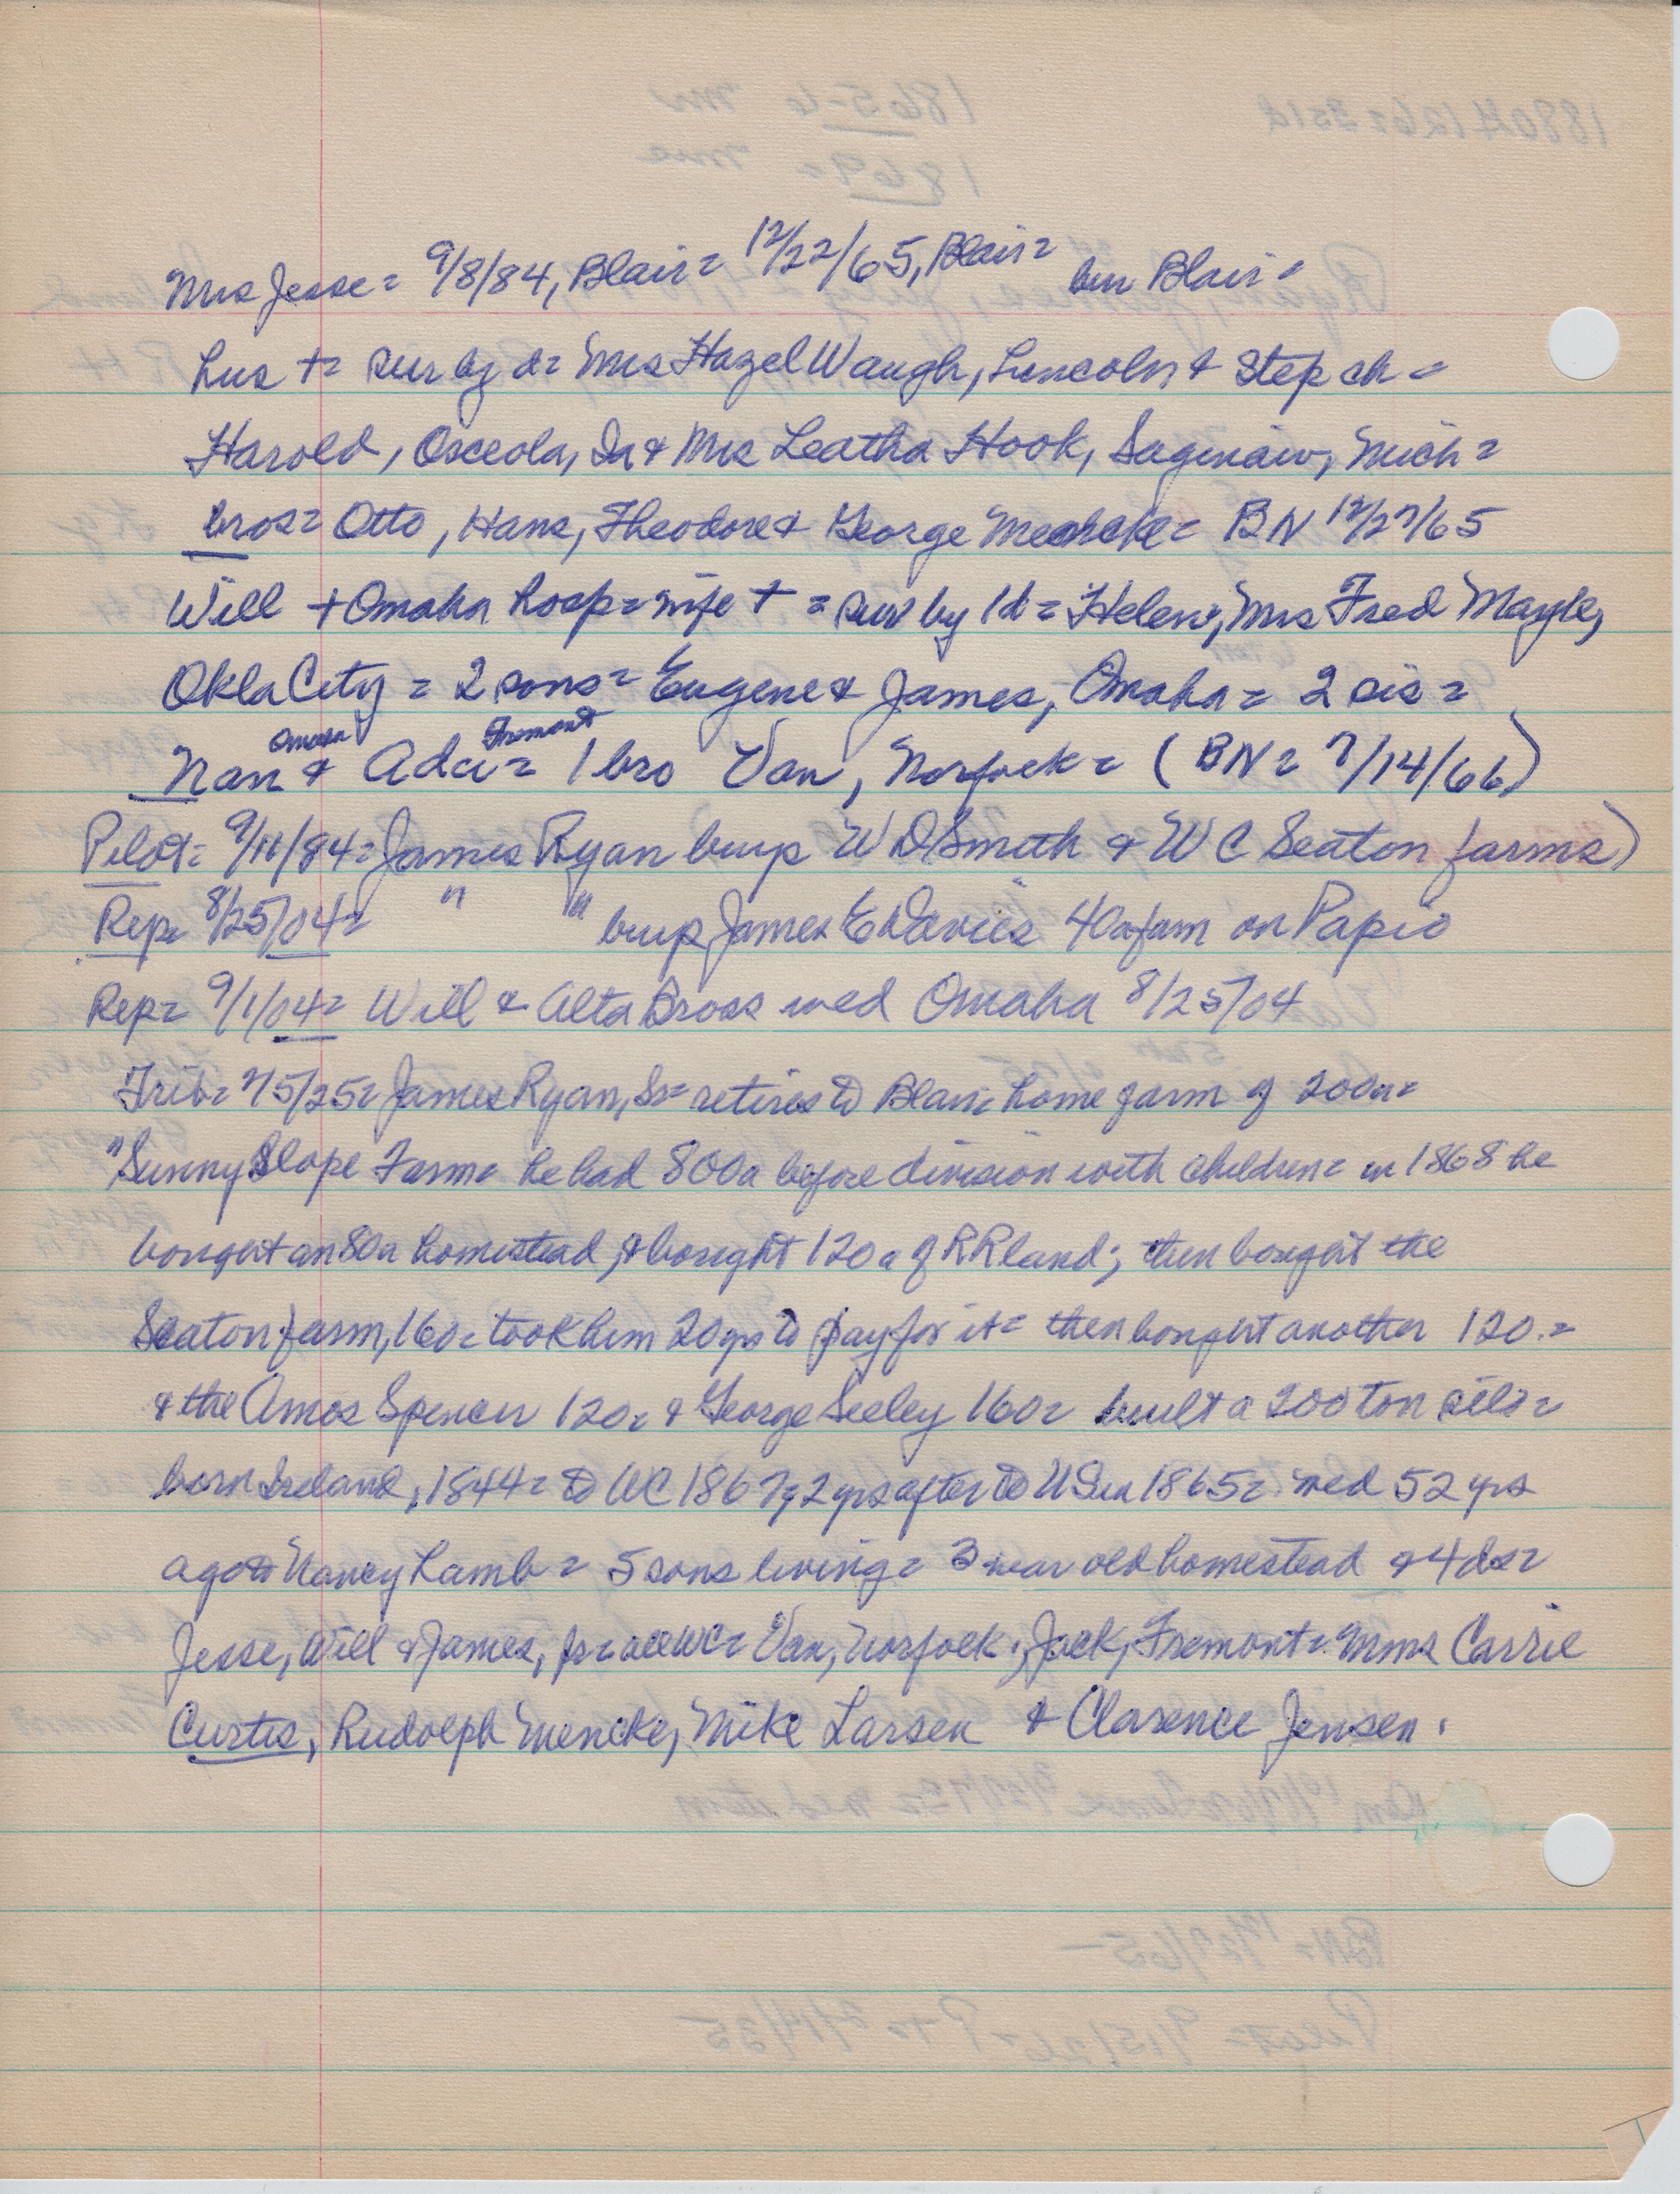 Mrs Jesse = 9/8/84, Blair = 12/22/65, Blair = bur Blair =
hus + = sur by d = Mrs Hazel Waugh, Lincoln & Step ch =
Harold, Osceola, Ia & Mrs Leatha Hook, Saginaw, Mich =
bros = Otto, Hans, Theodore & George Mencke = BN 12/27/65
Will + Omaha hosp = wife + = sur by 1d = Helen, Mrs Fred Mayle,
Okla City = 2 sons = Eugene & James, Omaha = 2 sis =
Omaha Fremont
Nan & Ada = 1 bro Van, Norfolk = (BN = 7/14/66)
Pilot = 9/11/84 = James Ryan buys W D Smith & W C Seaton farms)
Rep = 8/25/04 = " " buys James E Davis 40a farm on Papio
Rep = 9/1/04 = Will & Alta Bross wed Omaha 8/25/04
Trib = 7/5/25 = James Ryan, Sr = retires to Blair = home farm of 200a =
"Sunny Slope Farm = he had 800a before division with children = in 1868 he
bought an 80a homestead, & bought 120a of RR land; then bought the
Seaton farm, 160 = took him 20 yrs to pay for it = then bought another 120. =
& the Amos Spencer 120 = & George Seeley 160 = built a 200 ton silo =
born Ireland, 1844 = to WC 1867, 2 yrs after to US in 1865 = wed 52 yrs
ago to Nancy Lamb = 5 sons living = 3 near old homestead & 4 ds =
Jesse, Will & James, Jr = all WC = Van, Norfolk; Jack, Fremont = Mmes Carrie
Curtis, Rudolph Mencke, Mike Larsen & Clarence Jensen.